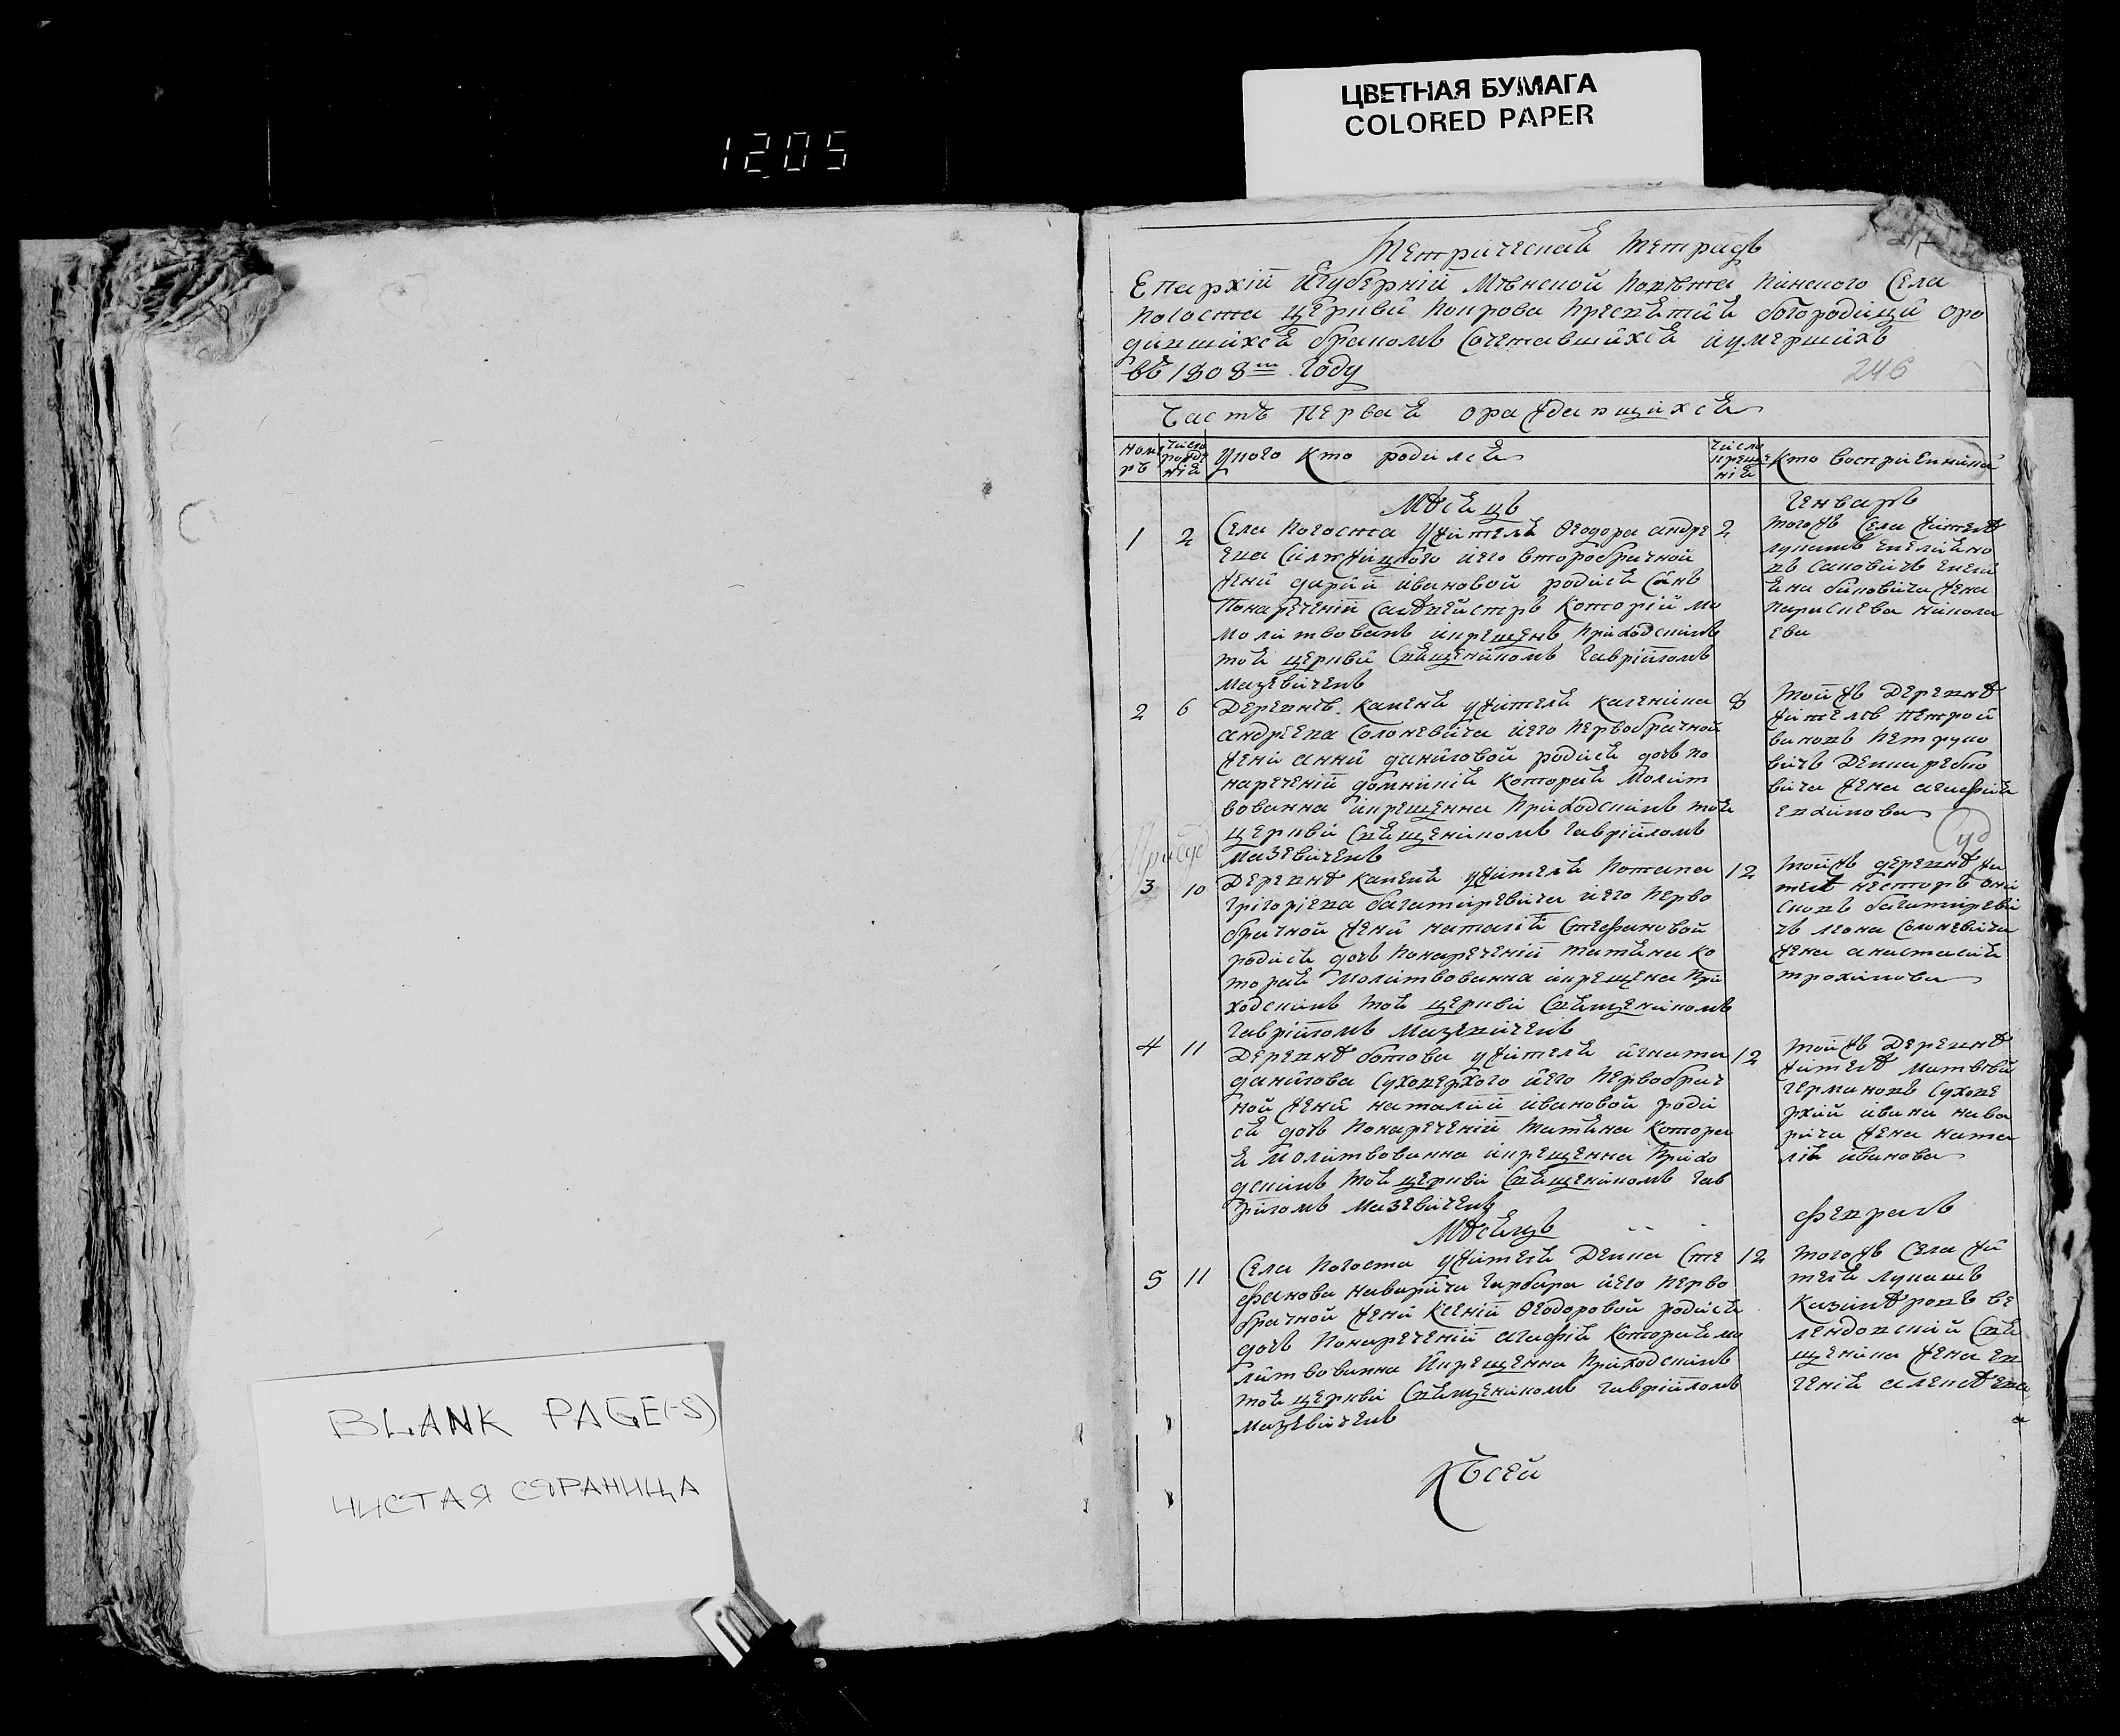 1205
ЦВЕТНАЯ БУМАГА
COLORED PAPER
BLANK PAGE(-S)
ЧИСТАЯ СТРАНИЦА
Метрическая тетрадь
Епархіи и губерніи Мѣнской повѣта Пинского Села
Погоста церкви Покрова Пресвятыя богородицы оро
дившихся бракомъ Сочетавшихся и умершихъ
въ 1808м Году
246
Часть первая ораждающихся
Номе
ръ
число
рожде
нія
У кого кто родился
число
креще
нія
Кто воспріемники
Мѣсяцъ
Генварь
1
2
Села Погоста у жителя Феодора андре
ева его второбрачной
жены даріи ивановой родися сынъ
По нареченіи Селивейстръ Который мо
молитвованъ и крещенъ Приходскимъ
той церкви Священикомъ Гавріиломъ
Мазевичемъ
2
того жъ Села
жена
никола
ева
2
6
Деревнѣ Каменя у жителя каленика
андреева Солоневича и его первобрачной
жени анни даниловой родися дочь по
нареченіи домникія Которая молит
вованна и крещенна Приходскимъ той
церкви Священикомъ Гавріиломъ
Мазевичемъ
8
той жъ Деревнѣ
житель Петро и
вановъ Петруко
вичъ
вича жена агафія
3
10
Деревнѣ Каменя у жителя Потапа
Григоріева багатиревича и его перво
брачной жени наталіи Стефановой
родися дочь По нареченіи татияна ко
торая молитвованна и крещена При
ходскимъ той церкви Священикомъ
Гавріиломъ Мазевичемъ
12
той жъ деревнѣ жи
тель несторъ они
сковъ багатиреви
чъ леона Солоневича
жена анастасия
трохимова
4
11
Деревнѣ ботова у жителя игната
данилова Суховерхого и его Первобрач
ной жени наталіи ивановой роди
ся дочь По нареченіи татияна котора
я молитвованна и крещенна Прихо
дскимъ той церкви Священикомъ Гав
ріиломъ Мазевичемъ
12
той жъ Деревнѣ
жителѣ Матвѣй
Германовъ Сухове
рхий ивана нава
рича жена ната
лія иванова
Мѣсяцъ
Февраль
5
11
Села Погоста у жителя Демка Сте
фанова наварича Гарбара и его перво
брачной жени Ксеніи Феодоровой родися
дочь По нареченіи агафія Которая мо
литвованна и крещенна Приходскимъ
той церкви Священикомъ Гавріиломъ
Мазевичемъ
12
того жъ Села жи
теля Лукашъ
Казимѣровъ ве
лендовский Свя
щеника жена ев
генія алексѣева
Къ сей